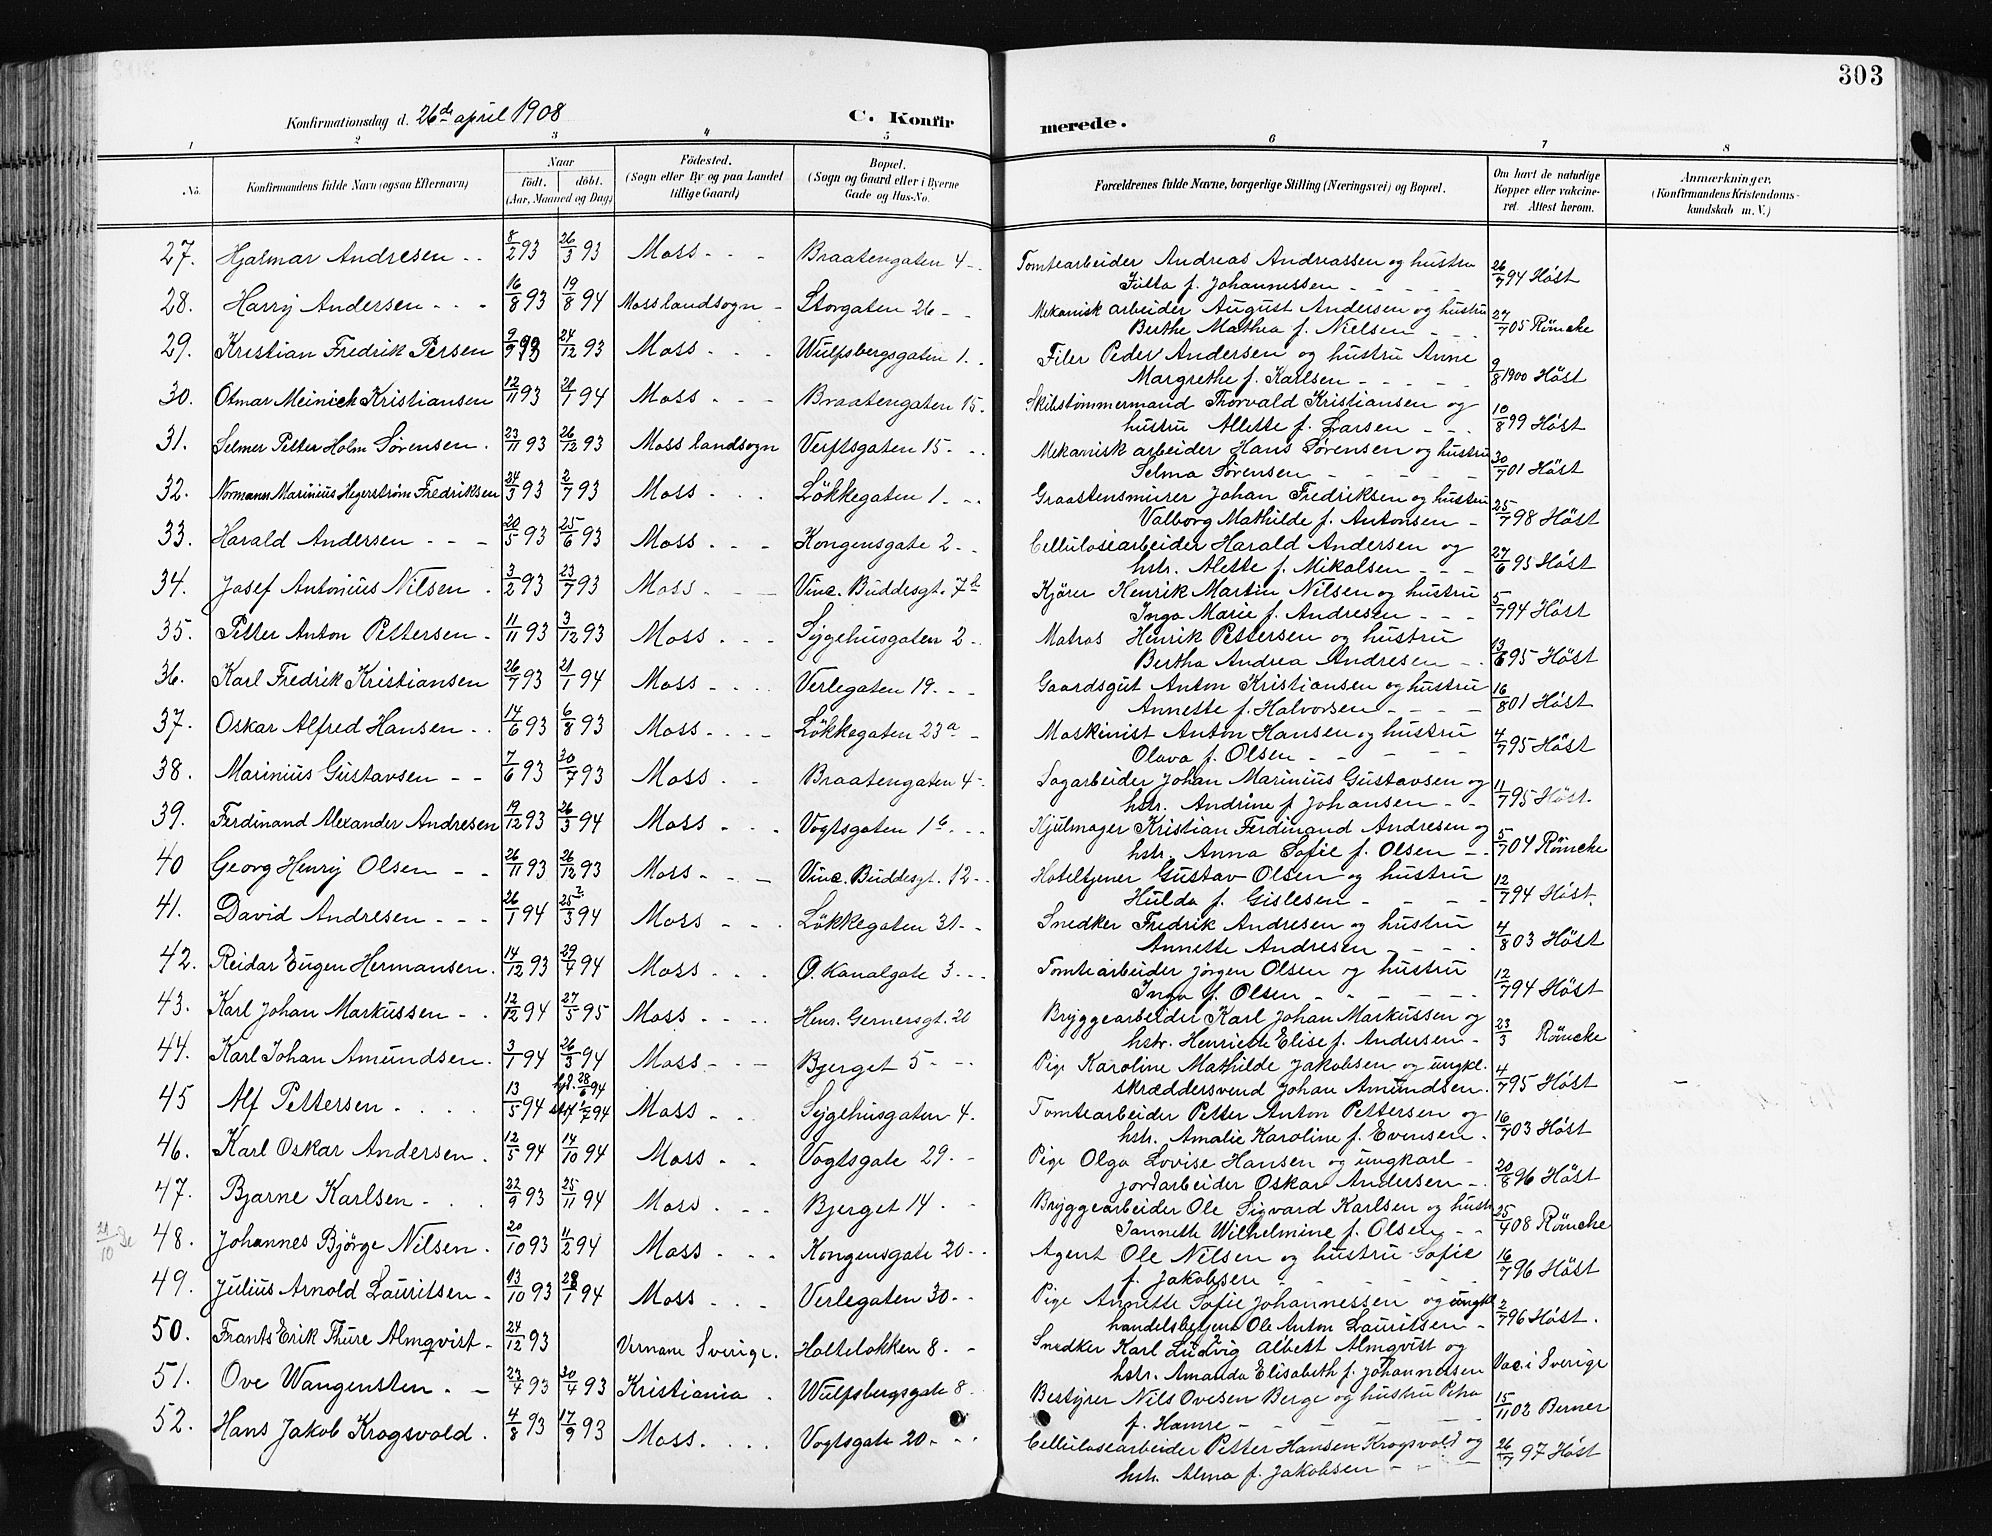 303
Konfirmationsdag d. 26de april 1908
C. Konfir
merede.
1 2 3 4 5 6 7 8
No.
Konfirmandens fulde Navn (ogsaa Efternavn)
Naar
født. døbt.
(Aar, Maaned og Dag)
Födested.
(Sogn eller By og paa Landet
tillige Gaard)
Bopæl.
(Sogn og Gaard eller i Byerne
Gade og Hus-No.
Forældrenes fulde Navne, borgerlige Stilling (Næringsvei) og Bopæl.
Om havt de naturlige
Kopper eller vakcine-
ret. Attest herom.
Anmærkninger.
(Konfirmandens Kristendoms-
kundskab m. V.)
27. Hjalmar Andresen 8/2 93 26/3 93 Moss Braatengaten 4 Tomtearbeider Andreas Andreassen og hustru
Julla f. Johannessen 26/7 94 Höst
28. Harry Andersen 16/8 93 19/8 94 Moss landsogn Storgaten 26 Mekanisk arbeider August Andersen og hustru
Berthe Mathea f. Nielsen 27/7 05 Römcke
29. Kristian Fredrik Persen 9/9 93 24/12 93 Moss Wulfsbergsgaten 1. Filer Peder Andersen og hustru Anne
Margrethe f. Karlsen 9/8 1900 Höst
30. Otmar Meinich Kristiansen 12/11 93 21/1 94 Moss Braatengaten 15. Skibstømmermand Thorvald Kristiansen og
hustru Allette f. Larsen 10/8 99 Höst
31. Selmer Petter Holm Sørensen 23/11 93 26/12 93 Moss landsogn Verftsgaten 15 Mekanisk arbeider Hans Sørensen og hustru
Selma Sørensen 30/7 01 Höst
32. Normann Marinius Hegerstrøm Fredriksen 24/3 93 2/7 93 Moss Løkkegaten 1. Graastensmurer Johan Fredriksen og hustru
Valborg Mathilde f. Antonsen 25/7 98 Höst
33. Harald Andersen 20/5 93 25/6 93 Moss Kongensgate 2 Cellulosearbeider Harald Andersen og
hstr. Alette f. Mikalsen 27/6 95 Höst
34. Josef Antonius Nilsen 3/2 93 23/7 93 Moss Vinc. Buddesgt. 7b Kjører Henrik Martin Nilsen og hustru
Inga Marie f. Andresen 5/7 94 Höst
35. Petter Anton Pettersen 11/11 93 3/12 93 Moss Sygehusgaten 2 Matros Henrik Pettersen og hustru
Bertha Andrea Andresen 13/6 95 Höst
36. Karl Fredrik Kristiansen 26/7 93 21/1 94 Moss Verlegaten 19 Gaardsgut Anton Kristiansen og hustru
Annette f. Halvorsen 16/8 01 Höst
37. Oskar Alfred Hansen 14/6 93 6/8 93 Moss Løkkegaten 23a Maskinist Anton Hansen og hustru
Olava f. Olsen 4/7 95 Höst
38. Marinius Gustavsen 7/6 93 30/7 93 Moss Braatengaten 4 Sagarbeider Johan Marinius Gustavsen og
hstr. Andrine f. Johansen 11/7 95 Höst.
39. Ferdinand Alexander Andresen 19/12 93 26/3 94 Moss Vogtsgaten 1b Hjulmager Kristian Ferdinand Andresen og
hstr. Anna Sofie f. Olsen 5/7 04 Römcke
40 Georg Henry Olsen 26/11 93 26/12 93 Moss Vinc. Buddesgt. 12 Hoteltjener Gustav Olsen og hustru
Hulda f. Gislesen 12/7 94 Höst.
41. David Andresen 26/1 94 25?/3 94 Moss Løkkegaten 31 Snedker Fredrik Andresen og hustru
Annette Andresen 4/8 03 Höst
42. Reidar Eugen Hermansen 14/12 93 29/4 94 Moss Ø. Kanalgate 3 Tomtearbeider Jørgen Olsen og hustru
Inga f. Olsen 12/7 94 Höst
43. Karl Johan Markussen 12/12 94 27/5 95 Moss Henr. Gernersgt. 20 Bryggearbeider Karl Johan Markussen og
hstr. Henriette Elise f. Andersen 23/3 Römcke
44. Karl Johan Amundsen 3/1 94 26/3 94 Moss Bjerget 5 Pige Karoline Mathilde Jakobsen og ungkl.
skræddersvend Johan Amundsen 4/7 95 Höst
45 Alf Pettersen 13/5 94 hjd. 28/6 94 1/7 94 Moss Sygehusgaten 4. Tomtearbeider Petter Anton Pettersen og
hstr. Amalie Karoline f. Evensen 16/7 03 Höst
46. Karl Oskar Andersen 12/5 94 14/10 94 Moss Vogtsgate 29. Pige Olga Lovise Hansen og ungkarl
jordarbeider Oskar Andersen 20/8 96 Höst
47. Bjarne Karlsen 22/9 93 25/11 94 Moss Bjerget 14 Bryggearbeider Ole Sigvard Karlsen og hustr
Jannette Wilhelmine f. Olsen 25/4 08 Römcke
21/10
48. Johannes Bjørge Nilsen 20/10 93 11/2 94 Moss Kongensgate 20 Agent Ole Nilsen og hustru Sofie
f. Jakobsen 16/7 96 Höst
49. Julius Arnold Lauritsen 13/10 93 28/1 94 Moss Verlegaten 30 Pige Annette Sofie Johannessen og ungkl
handelsbetjent Ole Anton Lauritsen 2/7 96 Höst.
50. Frants Erik Thure Almqvist 24/12 93 Vernam Sverige. Holteløkken 8 Snedker Karl Ludvig Albett Almqvist og
hstr. Amanda Elisabeth f. Johannessen Vac. i Sverige
51. Ove Wangensten 23/4 93 30/4 93 Kristiania Wulfsbergsgate 8 Bestyrer Nils Ovesen Berge og hustru Petra
f. Hamre 15/11 02 Berner
52. Hans Jakob Krogsvold 4/8 93 17/9 93 Moss. Vogtsgate 20 Cellulosearbeider Petter Hansen Krogsvold og
hstr. Alma f. Jakobsen 26/7 97 Höst